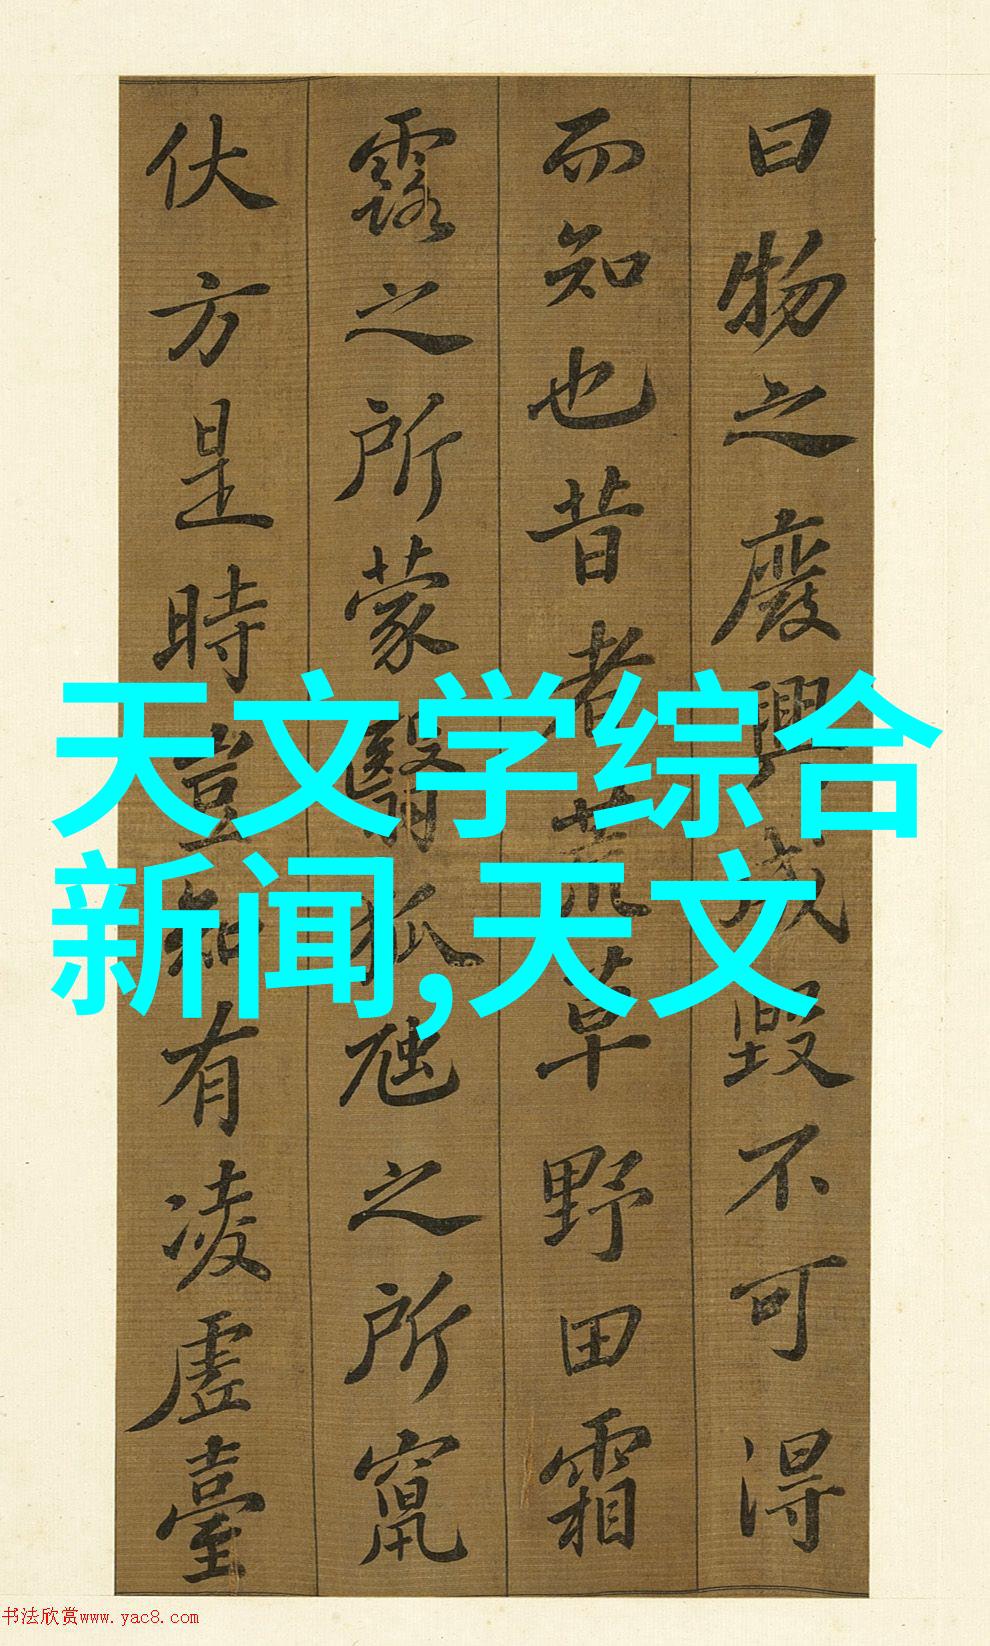 曰物之廢興成毀不可得
而知也昔者荒草野田霜
露之所蒙翳狐虺之所竄
伏方是時豈知有凌虛臺
天文学综合
新闻,天文
书法欣赏www.yac8.com